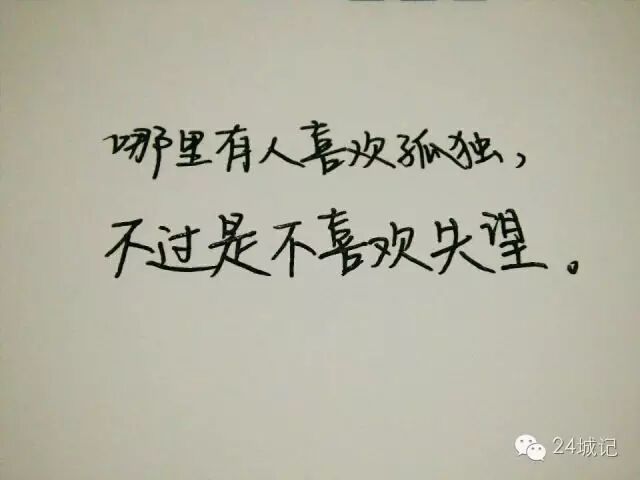 哪里有人喜欢孤独，
不过是不喜欢失望。
24城记